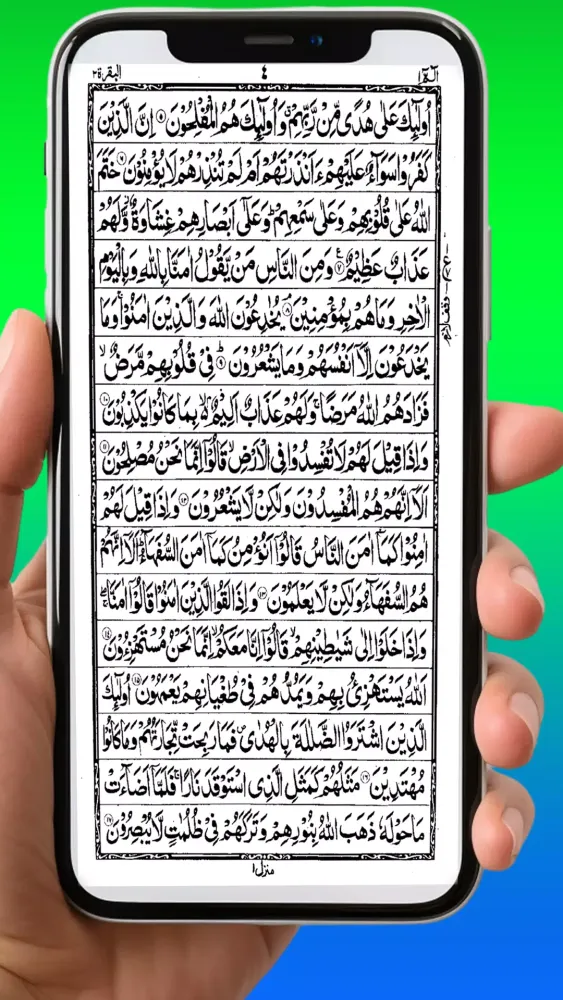 الٓمّٓ ١ ٤ البقرة ٢
اُولٰٓئِكَ عَلٰى هُدًى مِّنْ رَّبِّهِمْ ۗ وَاُولٰٓئِكَ هُمُ الْمُفْلِحُوْنَ ﴿٥﴾ اِنَّ الَّذِيْنَ
كَفَرُوْا سَوَآءٌ عَلَيْهِمْ ءَاَنْذَرْتَهُمْ اَمْ لَمْ تُنْذِرْهُمْ لَا يُؤْمِنُوْنَ ﴿٦﴾ خَتَمَ
اللّٰهُ عَلٰى قُلُوْبِهِمْ وَعَلٰى سَمْعِهِمْ ؕ وَعَلٰٓى اَبْصَارِهِمْ غِشَاوَةٌ ۫ وَّلَهُمْ
عَذَابٌ عَظِيْمٌ ﴿٧﴾ وَمِنَ النَّاسِ مَنْ يَّقُوْلُ اٰمَنَّا بِاللّٰهِ وَبِالْيَوْمِ
الْاٰخِرِ وَمَا هُمْ بِمُؤْمِنِيْنَ ﴿٨﴾ يُخٰدِعُوْنَ اللّٰهَ وَالَّذِيْنَ اٰمَنُوْا ۚ وَمَا
يَخْدَعُوْنَ اِلَّآ اَنْفُسَهُمْ وَمَا يَشْعُرُوْنَ ﴿٩﴾ فِيْ قُلُوْبِهِمْ مَّرَضٌ ۙ
فَزَادَهُمُ اللّٰهُ مَرَضًا ۚ وَلَهُمْ عَذَابٌ اَلِيْمٌ ۙ۬ بِمَا كَانُوْا يَكْذِبُوْنَ ﴿١٠﴾
وَاِذَا قِيْلَ لَهُمْ لَا تُفْسِدُوْا فِى الْاَرْضِ ۙ قَالُوْٓا اِنَّمَا نَحْنُ مُصْلِحُوْنَ ﴿١١﴾
اَلَآ اِنَّهُمْ هُمُ الْمُفْسِدُوْنَ وَلٰكِنْ لَّا يَشْعُرُوْنَ ﴿١٢﴾ وَاِذَا قِيْلَ لَهُمْ
اٰمِنُوْا كَمَآ اٰمَنَ النَّاسُ قَالُوْٓا اَنُؤْمِنُ كَمَآ اٰمَنَ السُّفَهَآءُ ؕ اَلَآ اِنَّهُمْ
هُمُ السُّفَهَآءُ وَلٰكِنْ لَّا يَعْلَمُوْنَ ﴿١٣﴾ وَاِذَا لَقُوا الَّذِيْنَ اٰمَنُوْا قَالُوْٓا اٰمَنَّا ۚۖ
وَاِذَا خَلَوْا اِلٰى شَيٰطِيْنِهِمْ ۙ قَالُوْٓا اِنَّا مَعَكُمْ ۙ اِنَّمَا نَحْنُ مُسْتَهْزِءُوْنَ ﴿١٤﴾
اَللّٰهُ يَسْتَهْزِئُ بِهِمْ وَيَمُدُّهُمْ فِيْ طُغْيَانِهِمْ يَعْمَهُوْنَ ﴿١٥﴾ اُولٰٓئِكَ
الَّذِيْنَ اشْتَرَوُا الضَّلٰلَةَ بِالْهُدٰى ۪ فَمَا رَبِحَتْ تِّجَارَتُهُمْ وَمَا كَانُوْا
مُهْتَدِيْنَ ﴿١٦﴾ مَثَلُهُمْ كَمَثَلِ الَّذِى اسْتَوْقَدَ نَارًا ۚ فَلَمَّآ اَضَآءَتْ
مَا حَوْلَهٗ ذَهَبَ اللّٰهُ بِنُوْرِهِمْ وَتَرَكَهُمْ فِيْ ظُلُمٰتٍ لَّا يُبْصِرُوْنَ ﴿١٧﴾
منزل ١